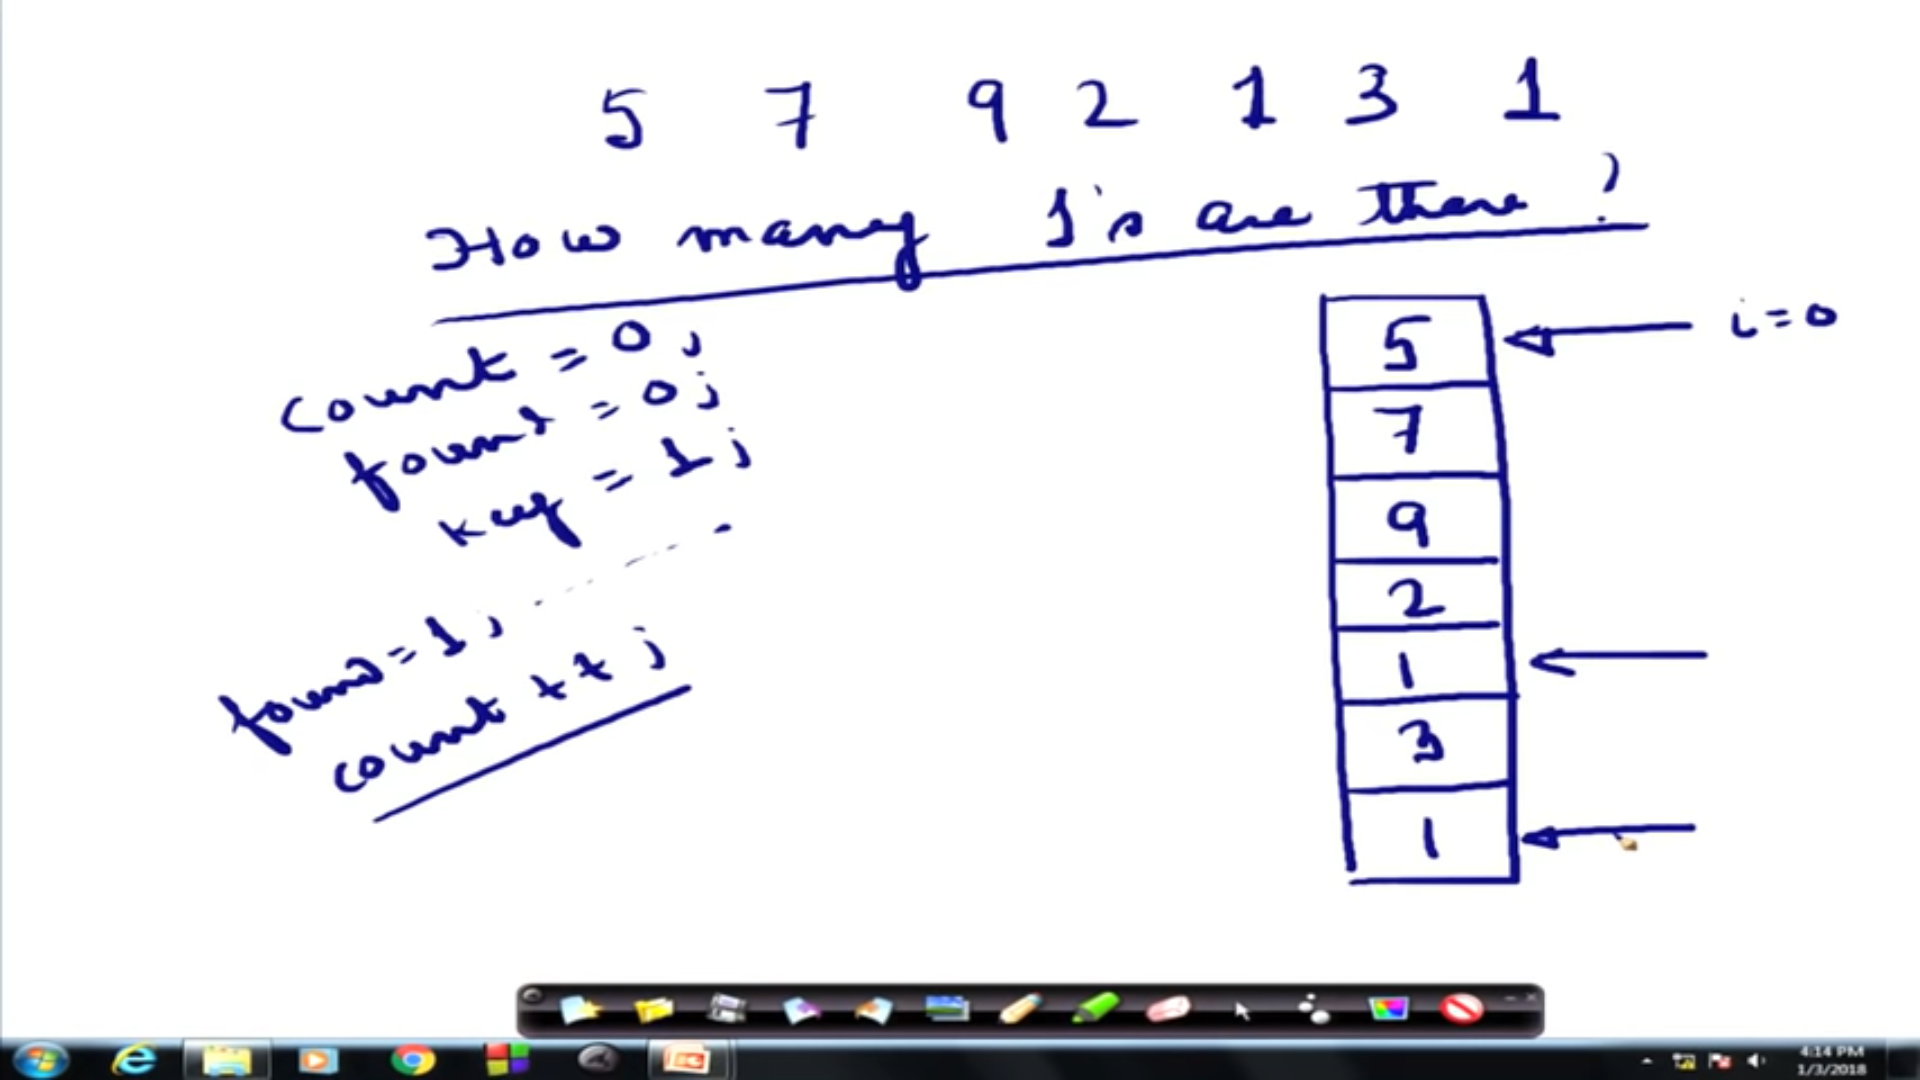 5 7 9 2 1 3 1
How many 1's are there?
count = 0;
found = 0;
key = 1;
found = 1;
count ++;
5
i=0
7
9
2
1
3
1
4:14 PM
1/3/2018